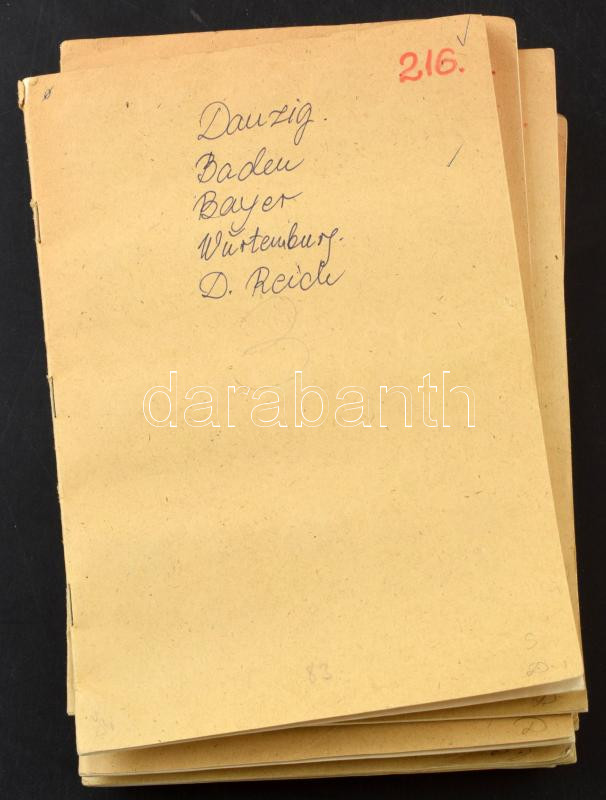 216.
Danzig.
Baden
Bayer
Würtemburg.
D. Reich
3
darabanth
83
S
D